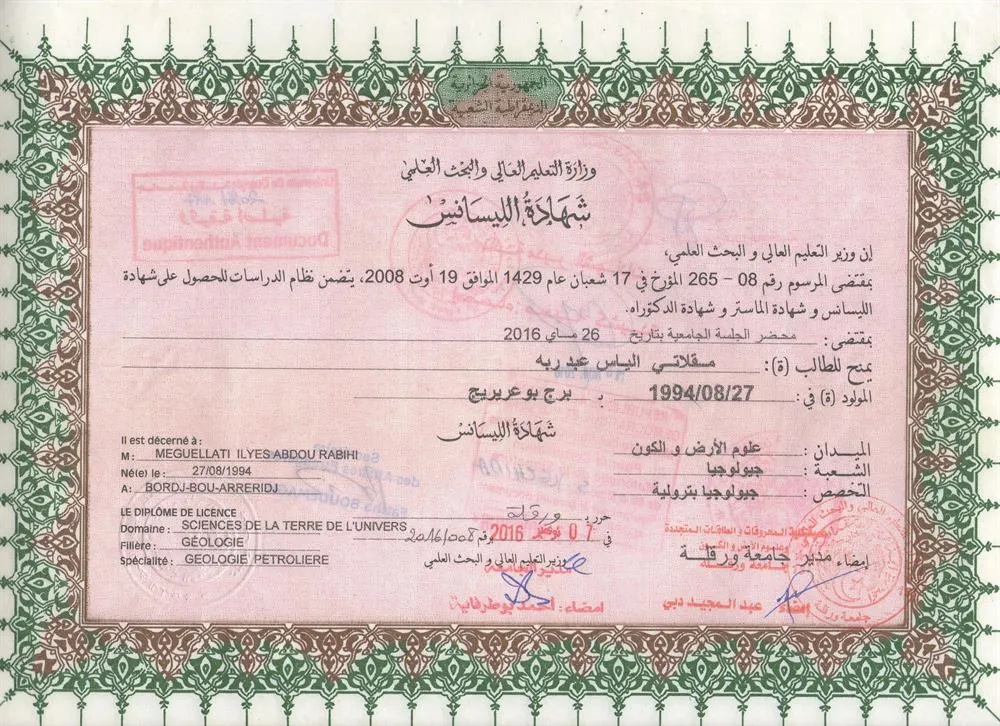 الجمهورية الجزائرية
الديمقراطية الشعبية
وزارة التعليم العالي والبحث العلمي
شهادة الليسانس
إن وزير التعليم العالي و البحث العلمي،
بمقتضى المرسوم رقم 08 – 265 المؤرخ في 17 شعبان عام 1429 الموافق 19 أوت 2008، يتضمن نظام الدراسات للحصول على شهادة
الليسانس و شهادة الماستر و شهادة الدكتوراه.
بمقتضى : محضر الجلسة الجامعية بتاريخ 26 ماي 2016
يمنح للطالب (ة): مقلاتي الياس عبد ربه
المولود (ة) في: 1994/08/27 بـ برج بوعريريج
شهادة الليسانس
الميدان : علوم الأرض و الكون
الشعبة : جيولوجيا
التخصص : جيولوجيا بترولية
Il est décerné à :
M : MEGUELLATI ILYES ABDOU RABIHI
Né(e) le : 27/08/1994
A : BORDJ-BOU-ARRERIDJ
LE DIPLÔME DE LICENCE
Domaine : SCIENCES DE LA TERRE DE L'UNIVERS
Filière : GÉOLOGIE
Spécialité : GEOLOGIE PETROLIERE
حرر بـ ورقلة
في 07 نوفمبر 2016 رقم 2016/008
وزير التعليم العالي و البحث العلمي
مدير الجامعة
إمضاء : أحمد بوطرفاية
المحروقات و الطاقات المتجددة
وعلوم الأرض و الكون
بجامعة ورقلة
إمضاء مدير جامعة ورقلة
إمضاء عبد المجيد دبي
جامعة ورقلة
Document Authentique